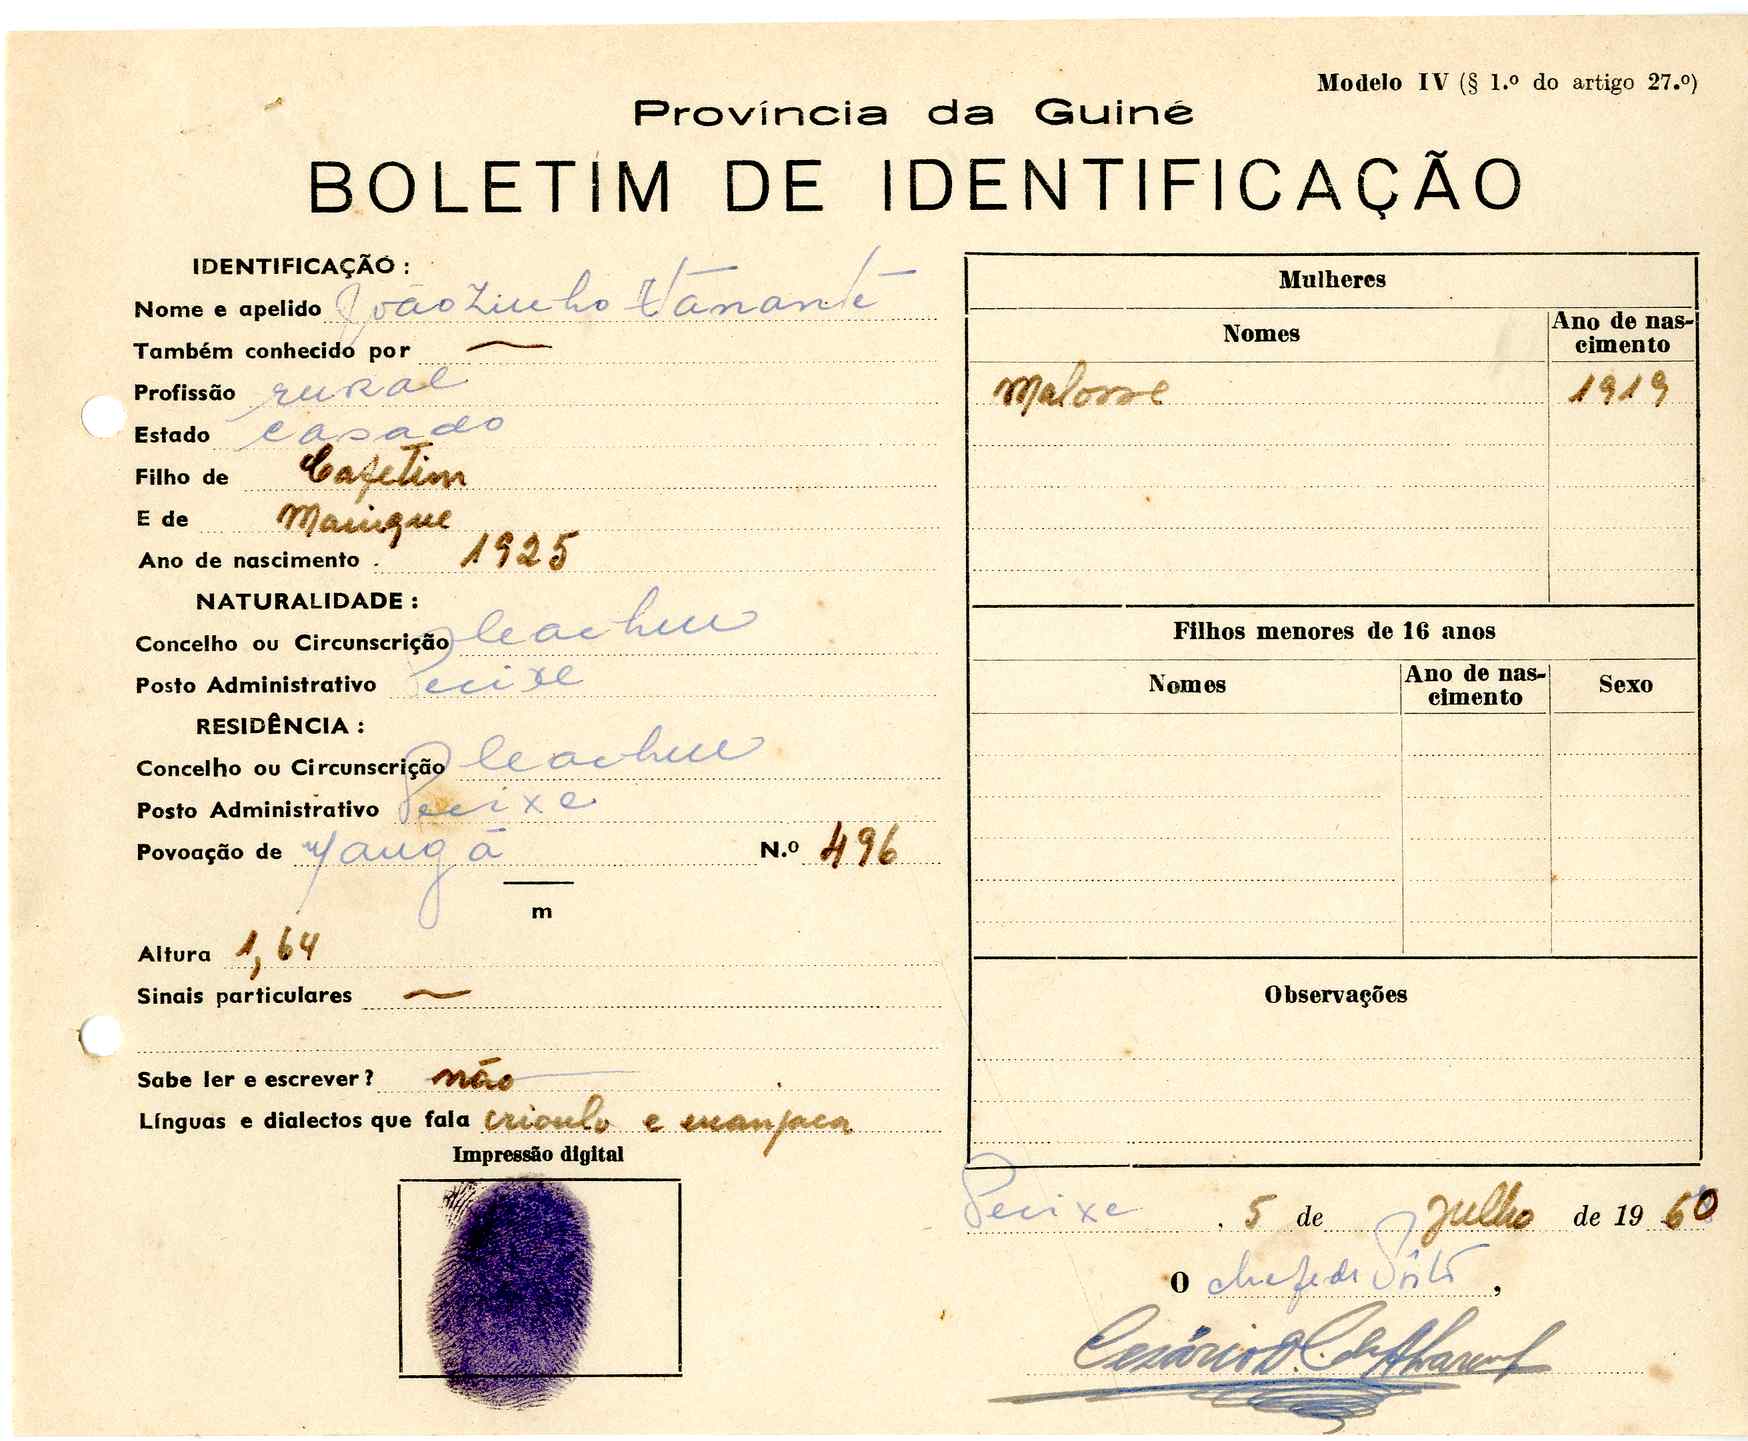 Modelo IV (§ 1.º do artigo 27.º)
Província da Guiné
BOLETIM DE IDENTIFICAÇÃO
IDENTIFICAÇÃO :
Nome e apelido Joãozinho
Também conhecido por —
Profissão rural
Estado casado
Filho de Cafetim
E de Manique
Ano de nascimento 1925
NATURALIDADE :
Concelho ou Circunscrição Cacheu
Posto Administrativo Pecixe
RESIDÊNCIA :
Concelho ou Circunscrição Cacheu
Posto Administrativo Pecixe
Povoação de N.º 496
m
Altura 1,64
Sinais particulares —
Sabe ler e escrever? não
Línguas e dialectos que fala crioulo e manjaca
Impressão digital
Mulheres
Nomes Ano de nas-
cimento
Malosse 1919
Filhos menores de 16 anos
Nomes Ano de nas-
cimento Sexo
Observações
Pecixe, 5 de Julho de 1960
O chefe de Pôsto,
Cesário